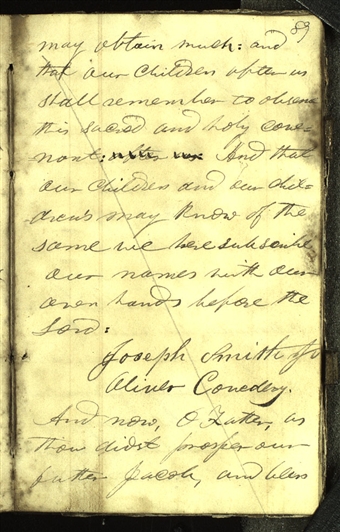 89
may obtain much: and
that our children after us
shall remember to observe
this sacred and holy cove-
nant: And that
our children and our chil-
drens may know of the
same we here subscribe
our names with our
own hands before the
Lord:
Joseph Smith Jr
Oliver Cowdery.
And now, O Father, as
thou didst prosper our
father Jacob, and bless